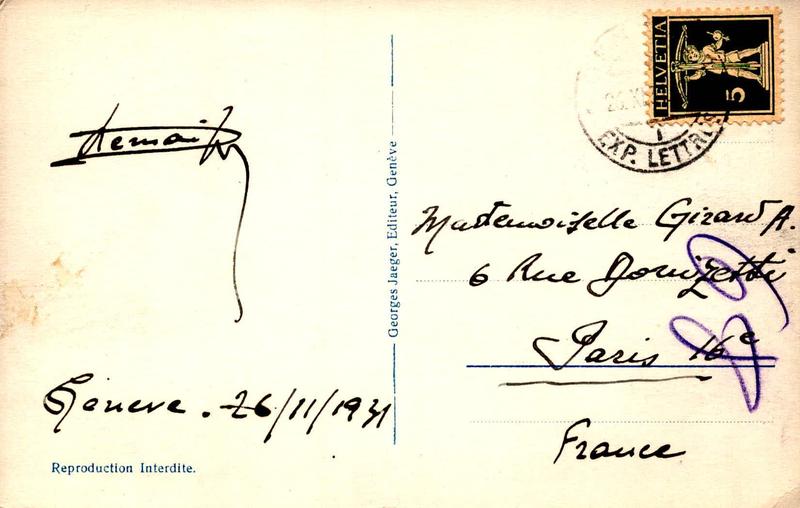 HELVETIA
5
EXP. LETTR
Genève. 26/11/1931
Reproduction Interdite.
Georges Jaeger, Editeur, Genève
Mademoiselle Girard A.
6 Rue Donizetti
Paris 16e
France